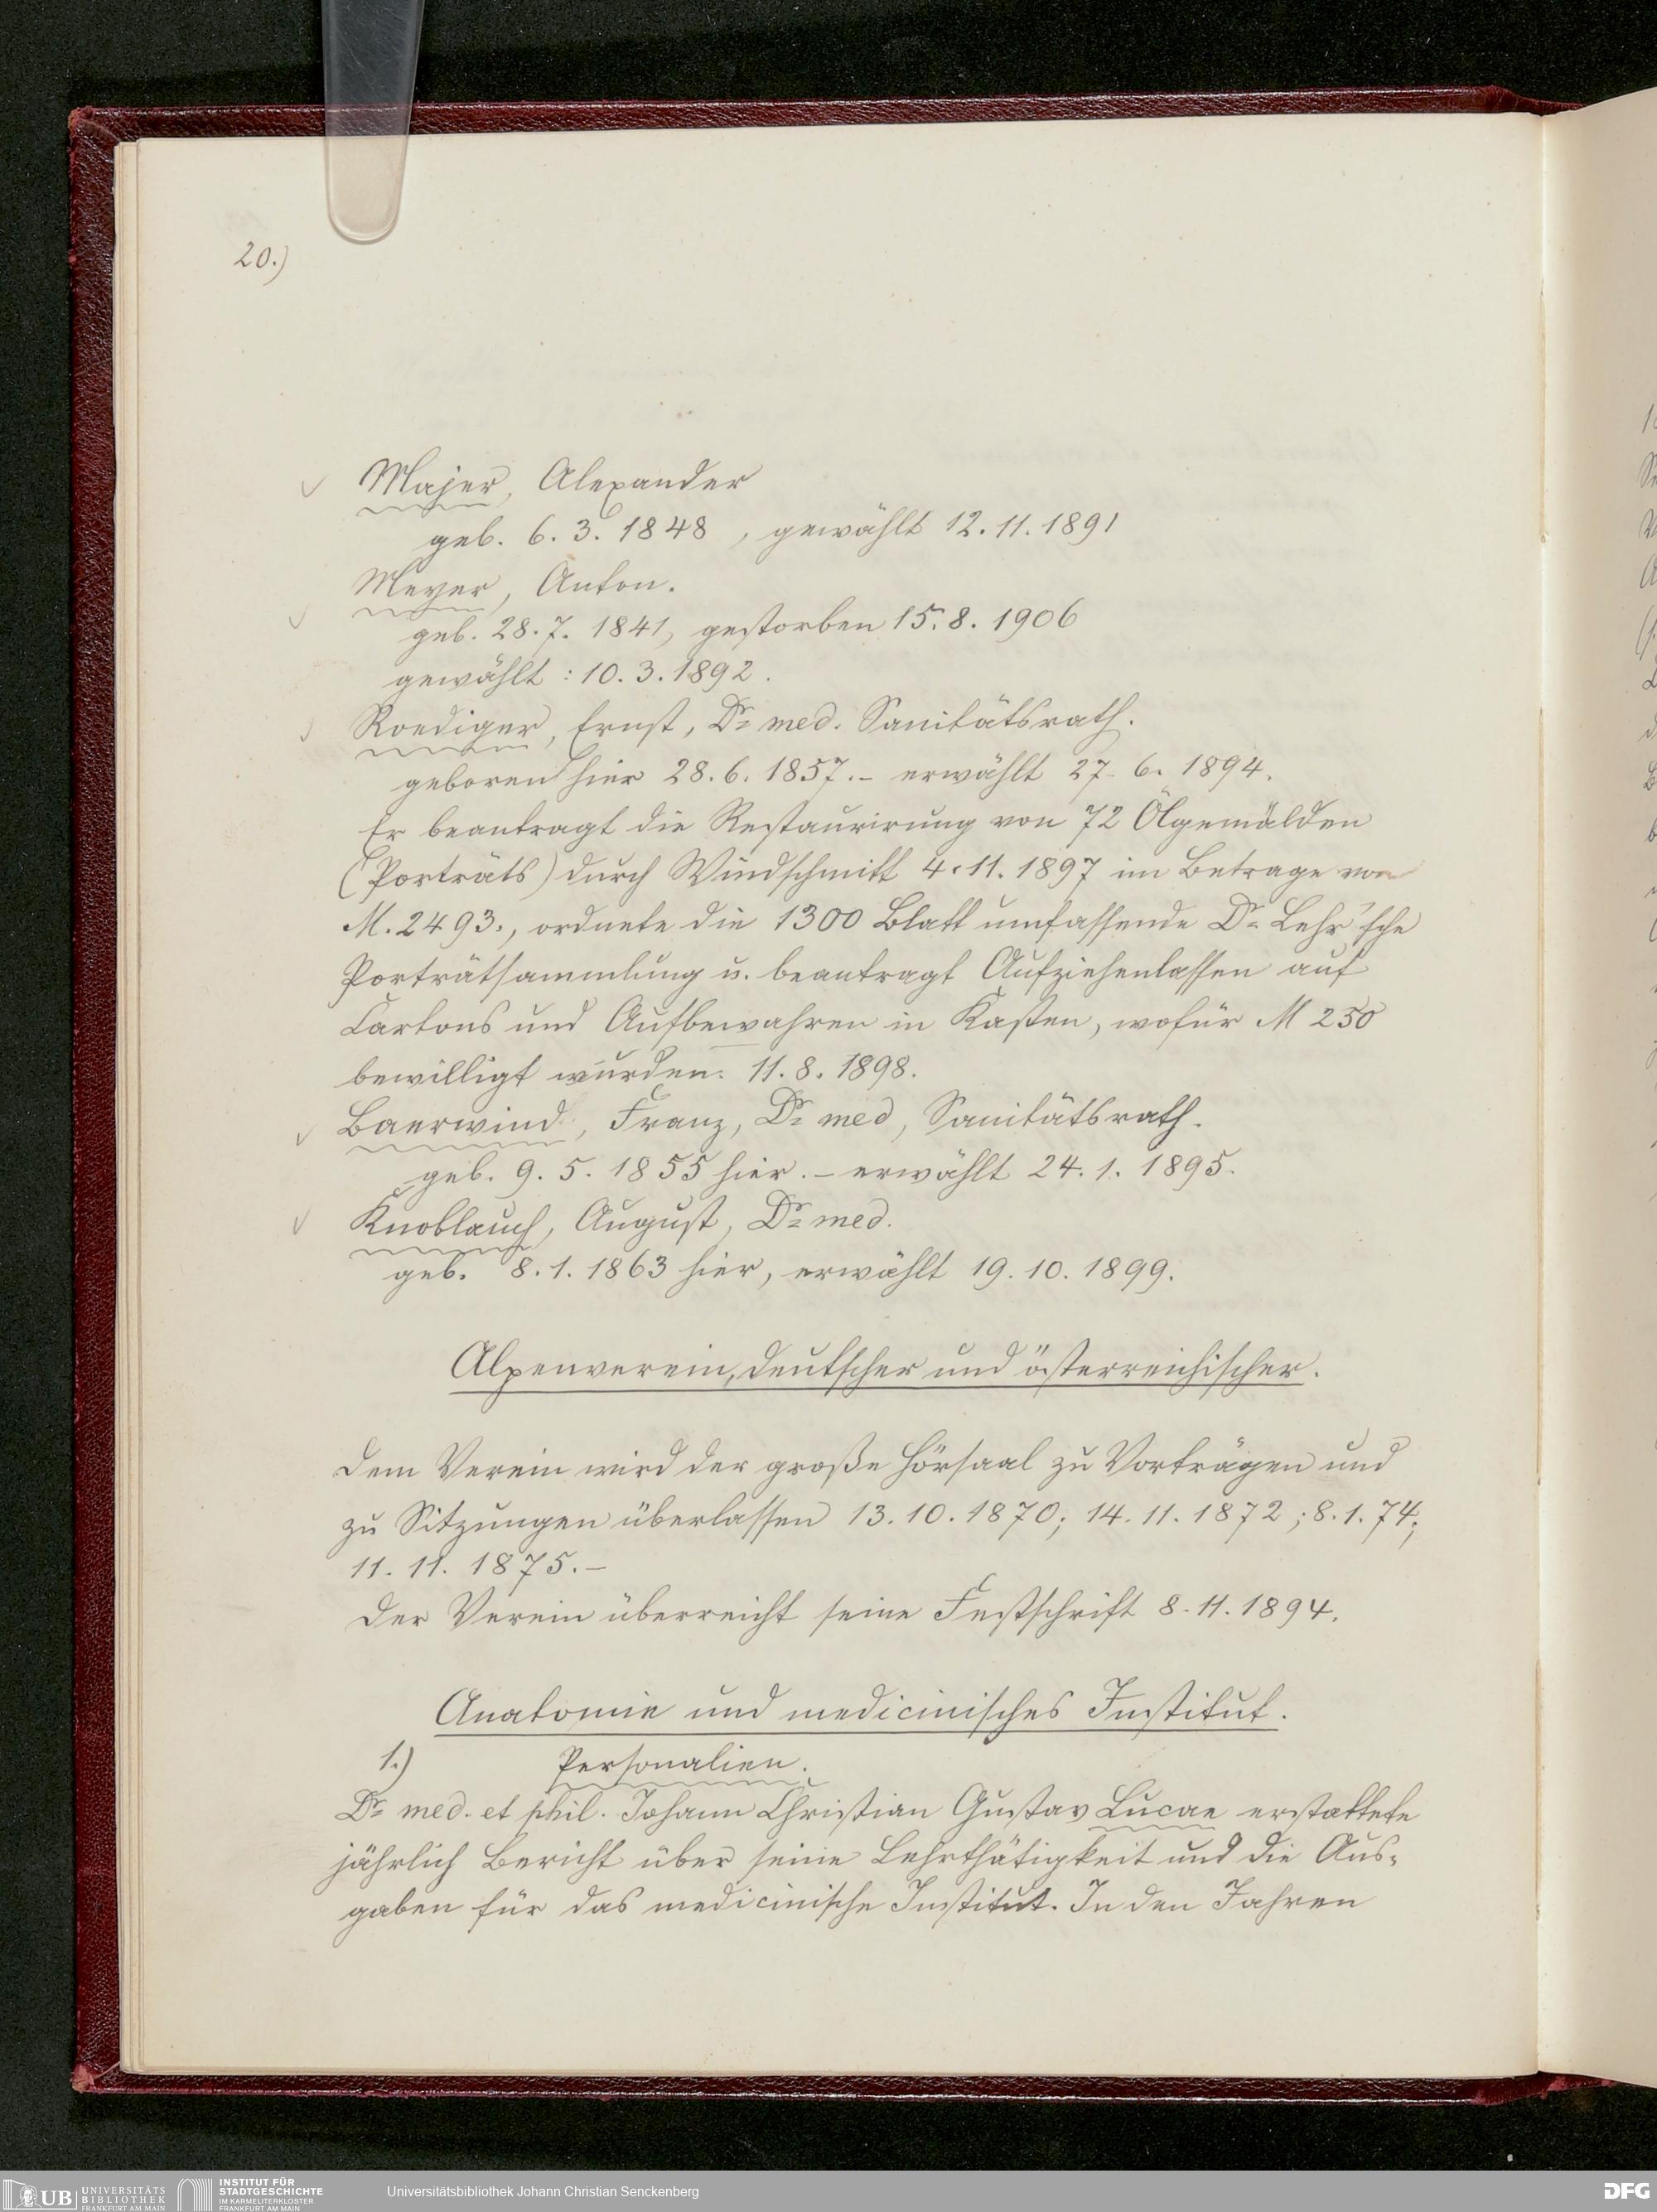 20.)
Majer, Alexander
geb. 6. 3. 1848, gewählt 12. 11. 1891
Meyer, Anton.
geb. 28. 7. 1841, gestorben 15. 8. 1906
gewählt: 10. 3. 1892.
Roediger, Ernst, Dr. med. Sanitätsrath.
geboren hier 28. 6. 1857. – erwählt 27. 6. 1894.
Er beantragt die Restaurirung von 72 Ölgemälden
(Porträts) durch Windschmitt 4. 11. 1897 im Betrage von
M. 2493., ordnete die 1300 Blatt umfassende Dr. Lehr'sche
Porträtsammlung u. beantragt Aufziehenlassen auf
Cartons und Aufbewahren in Kasten, wofür M 250
bewilligt wurden. 11. 8. 1898.
Baerwind, Franz, Dr. med, Sanitätsrath.
geb. 9. 5. 1855 hier. – erwählt 24. 1. 1895.
Knoblauch, August, Dr. med.
geb. 8. 1. 1863 hier, erwählt 19. 10. 1899.
Alpenverein, deutscher und österreichischer.
Dem Verein wird der große Hörsaal zu Vorträgen und
zu Sitzungen überlassen 13. 10. 1870; 14. 11. 1872; 8. 1. 74;
11. 11. 1875. –
Der Verein überreicht seine Festschrift 8. 11. 1894.
Anatomie und medicinisches Institut.
1.) Personalien.
Dr. med. et phil. Johann Christian Gustav Lucae erstattete
jährlich Bericht über seine Lehrthätigkeit und die Aus-
gaben für das medicinische Institut. In den Jahren
UB UNIVERSITÄTS BIBLIOTHEK FRANKFURT AM MAIN
INSTITUT FÜR STADTGESCHICHTE IM KARMELITERKLOSTER FRANKFURT AM MAIN
Universitätsbibliothek Johann Christian Senckenberg
DFG